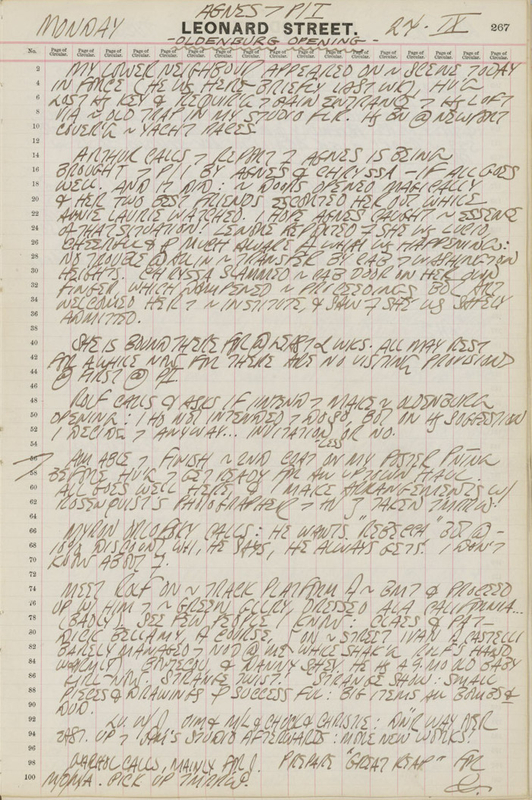 AGNES - PIT
MONDAY LEONARD STREET. 24 - IX 267
- OLDENBURG OPENING -
No. Page of Circular. Page of Circular. Page of Circular. Page of Circular. Page of Circular. Page of Circular. Page of Circular. Page of Circular. Page of Circular. Page of Circular.
2 MY LOWER NEIGHBOUR APPEARED ON ~ SCENE TODAY
4 IN FORCE (HE WS HERE BRIEFLY LAST WK)
6 LOST HS KEY & REQUIRG GAIN ENTRANCE HS LOFT
8 VIA ~ OLD TRAP IN MY STUDIO FLR. HS ON @ NEWPORT
10 COVERG ~ YACHT RACES
12
14 ARTHUR CALLS REPORT AGNES IS BEING
16 BROUGHT PIT BY AGNES & CHRYSSA - IF ALL GOES
18 WELL. AND IT DID: ~ DOORS OPENED MAGICALLY
20 & HER TWO BEST FRIENDS ESCORTED HER OUT WHILE
22 ANNIE LAURIE WATCHED. I HOPE AGNES CAUGHT ~ ESSENCE
24 THAT SITUATION! LENORE REPORTED SHE WS LUCID
26 CHEERFUL & MUCH AWARE WHAT WS HAPPENING:
28 NO TROUBLE @ ALL IN ~ TRANSFER BY CAB WASHINGTON
30 HEIGHTS. CHRYSSA SLAMMED ~ CAB DOOR ON HER OWN
32 FINGER WHICH DAMPENED ~ PROCEEDINGS BUT ART
34 WELCOMED HER ~ INSTITUTE, & SAW SHE WS SAFELY
36 ADMITTED.
38
40 SHE IS BOUND THERE FOR @ LEAST 2 WKS. ALL MAY REST
42 FOR AWHILE NOW FOR THERE ARE NO VISTING PROVISIONS
44 @ FIRST @ PI
46
48 ROLF CALLS & ASKS IF I INTEND MAKE ~ OLDENBURG
50 OPENING: I HD NOT INTENDED DO SO, BUT ON HS SUGGESTION
52 I DECIDE ANYWAY... INVITATION YES OR NO.
54
56 AM ABLE FINISH ~ 2ND COAT ON MY POSTER PNTNG
58 BEFORE HVNG GET READY FOR AN UPTOWN HAUL.
60 ALL GOES WELL HERE & I MAKE ARRANGEMENTS W/
62 ROSENQUIST'S PHOTOGRAPHER TAKEN TMRRW.
64
66 MYRON ORLOFSKY CALLS: HE WANTS "REBECCA" BUT @ -
68 10% DISCOUNT, WH, HE SAYS, HE ALWAYS GETS. I DON'T
70 KNOW ABOUT
72
74 MEET ROLF ON ~ TRACK PLATFORM ~ BMT & PROCEED
76 UP W/ HIM ~ GREEN GLLRY DRESSED ALA CALIFORNIA...
78 (BADLY). SEE FEW PEOPLE I KNOW: CLAES & PAT -
80 DICK BELLAMY, A COURSE, ON ~ STREET IVAN & CASTELLI
82 BARELY MANAGED NOD @ ME WHILE SHAK'G ROLF'S HAND
84 WARMLY. BONTECOU, & DANNY SHEY. HE HS A 9 MO OLD BABY
86 GIRL NOW. STRANGE TWIST. STRANGE SHOW: SMALL
88 PIECES & DRAWINGS SUCCESS FUL: BIG ITEMS AN BOMBS &
90 DUD.
92 & CHUCK & CHRISTIE:
94 UP STUDIO AFTERWARDS: MORE NEW WORKS.
96
98 WARHOL CALLS, MAINLY PREPARE "GREAT REAP" FOR
100 MOMA. PICK UP TMRRW.